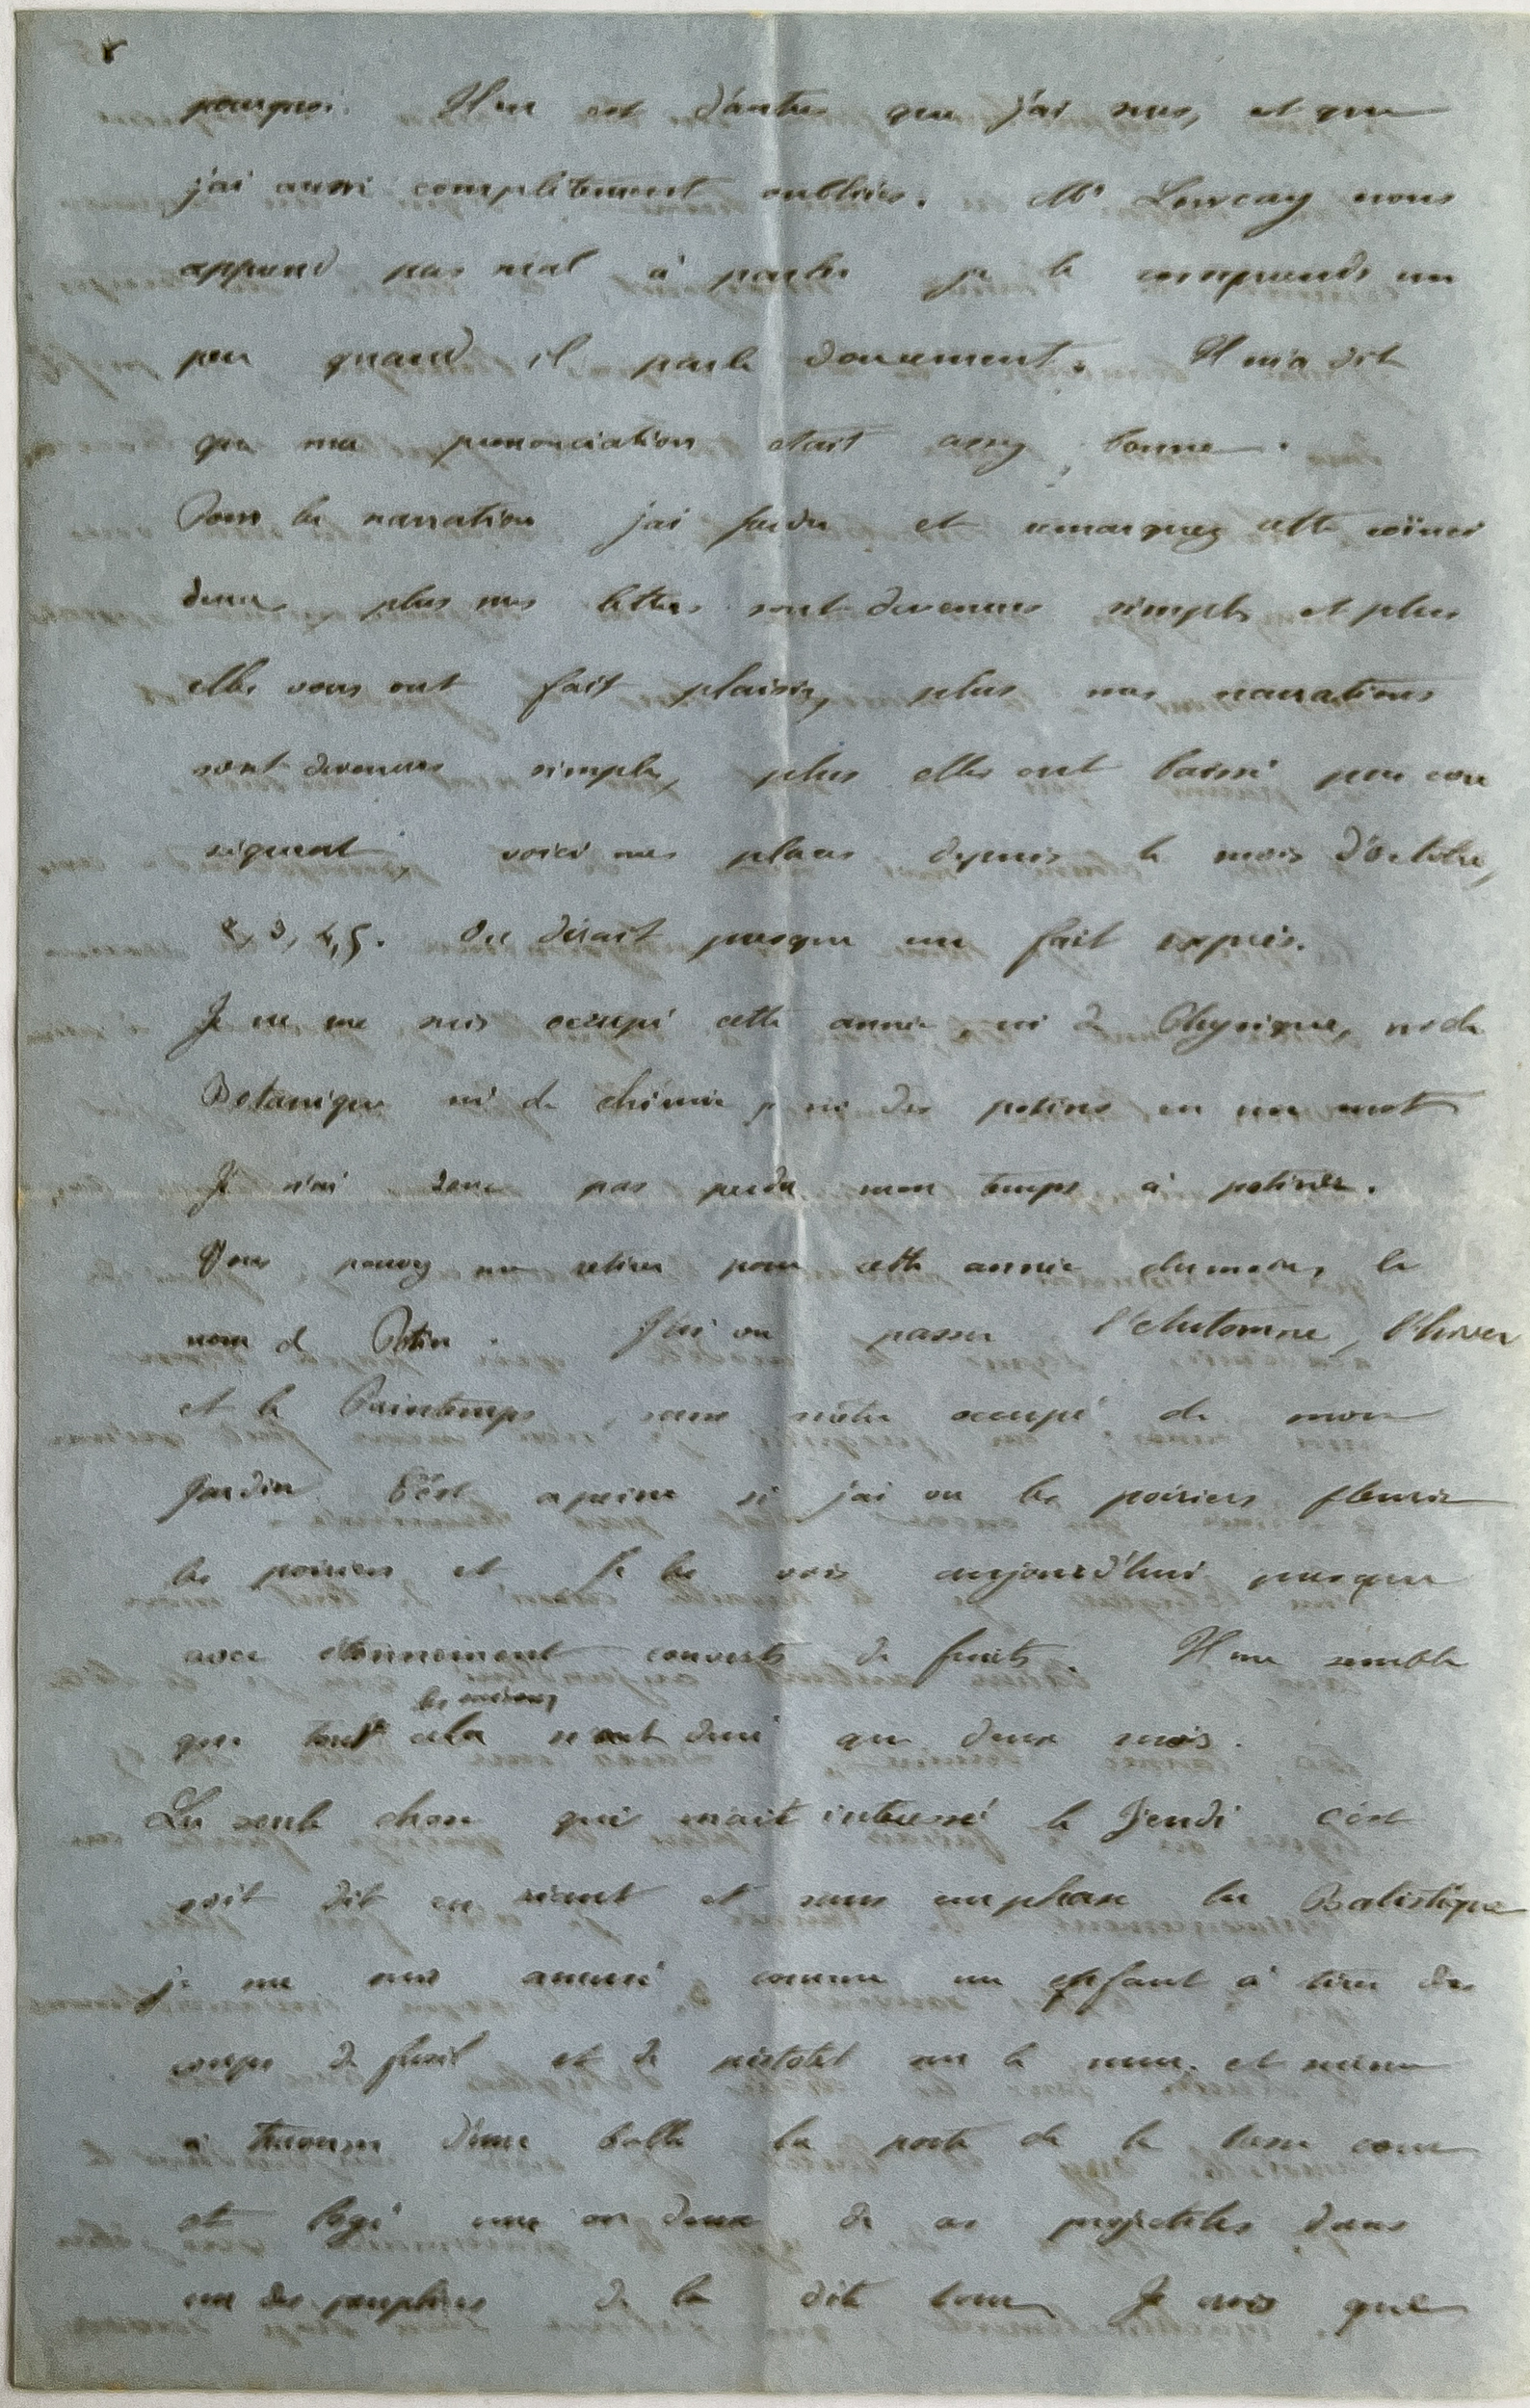 8
pourquoi. Il en est d'autres que j'ai sues, et que
j'ai aussi complètement oubliées. Mr Lowcay nous
apprend pas mal à parler je le comprends un
peu quand il parle doucement. Il m'a dit
que ma prononciation etait assez bonne.
Pour la narration j'ai perdu et remarquez cette coïnci
dence plus mes lettres sont devenues simples et plus
elles vous ont fait plaisir, plus mes narrations
sont devenues simples, plus elles ont baissé par con
séquent, voici mes places depuis le mois d'octobre,
2, 3, 4, 5. On dirait presque un fait exprès.
Je ne me suis occupé cette année, ni de Physique, ni de
Botanique ni de chimie, ni des potins en un mot
Je n'ai donc pas perdu mon temps à potiner.
Vous pouvez me retirer pour cette année du moins, le
nom de Potin. J'ai vu passer l'Automne, l'hiver
et le Printemps, sans m'être occupé de mon
Jardin C'est a peine si j'ai vu les poiriers fleuris
les poiriers et Je les vois aujourd'hui presque
avec étonnement couverts de fruits. Il me semble
que tout cela n'ont duré que deux mois.
La seule chose qui m'ait intéressé le Jeudi c'est
soit dit en riant et sans emphase la Balistique
je me suis amusé comme un enfant à tirer des
coups de fusil et de pistolet sur le mur. et même
à traverser d'une balle la porte de la basse cour
et logé une ou deux de ces projectiles dans
un des peupliers de la dite cour Je crois que